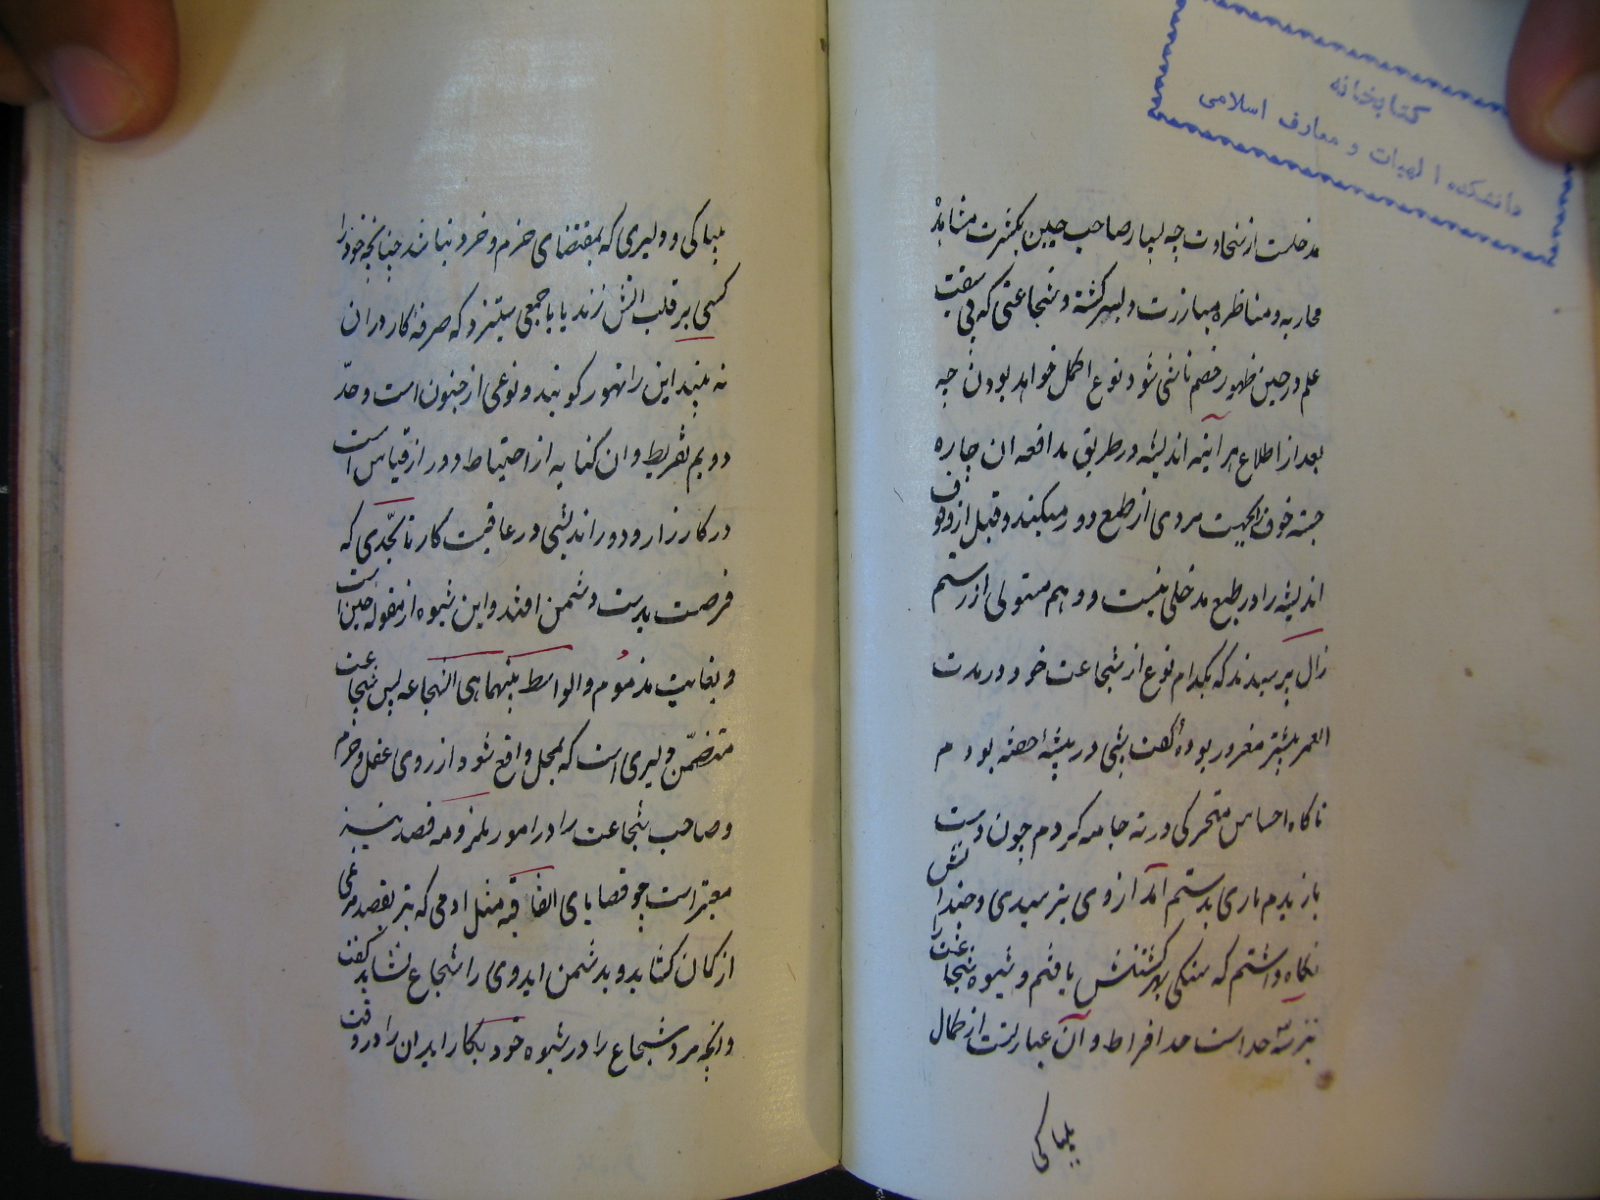 کتابخانه
دانشکده الهیات و معارف اسلامی
مدخلت از سخاوت چه بسیار صاحب جبین بکثرت مشاهدهٔ
محاربه و مناظره مبارزت دلیر کشته و شجاعتی که بی سبقت
علم در حین ظهور خصم ناشی شود نوع اکمل خواهد بودن چه
بعد از اطلاع هر آینه اندیشه در طریق مدافعه ان چاره
جسته خوف بجهت مردی از طبع دور میکند و قبل از وقوف
اندیشه را در طبع مدخلی نیست و وهم مستولی از رستم
زال پرسیدند که بکدام نوع از شجاعت خود در مدت
العمر بیشتر مغرور بودهٔ گفت شبی در بیشه خفته بودم
ناکاه احساس متحرکی در ته جامه کردم چون دست
بازیدم ماری بدستم آمد از وی نترسیدی و چندانش
نکاه داشتم که سنکی بهر کشتنش یافتم و شیوه شجاعت را
نیز سه حد است حد افراط و آن عبارتست از کمال
بیباکی
بیباکی و دلیری که بمقتضای حزم و خرد نباشد چنانچه خود را
کسی بر قلب اتش زند یا با جمعی ستیزد که صرفهٔ کار در ان
نه بیند این را تهور کویند و نوعی از جنون است و حدّ
دویم تفریط و ان کنایه از احتیاط دور از قیاس است
در کارزار و دور اندیشی در عاقبت کار تا بحّدی که
فرصت بدست دشمن افتد و این شیوه از مقوله جبن است
و بغایت مذموم و الواسط بینهما هی الشجاعه پس شجاعت
متضمّن دلیری است که بمحل واقع شود از روی عقل و حزم
و صاحب شجاعت را در امور ملزومه قصد نیز
معتبر است چو قضایای اتفاقیه مثل ادمی که تیر بقصد مرغی
از کمان کشاید و بدشمن اید وی را شجاع نشاید گفت
و انچه مرد شجاع را در شیوه خود بکار اید ان را در وقت